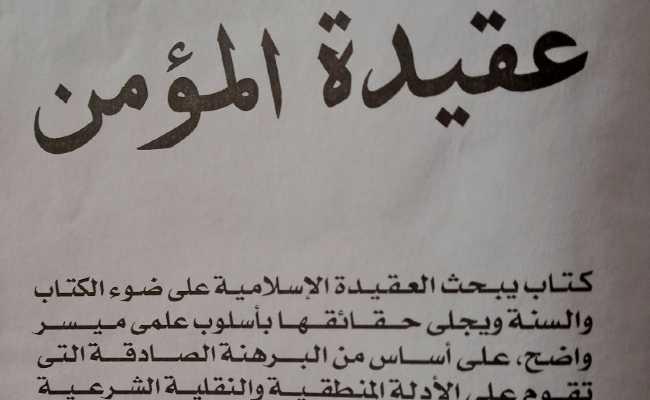 عقيدة المؤمن
كتاب يبحث العقيدة الإسلامية على ضوء الكتاب
والسنة ويجلى حقائقها بأسلوب علمى ميسر
واضح، على أساس من البرهنة الصادقة التى
تقوم على الأدلة المنطقية والنقلية الشرعية